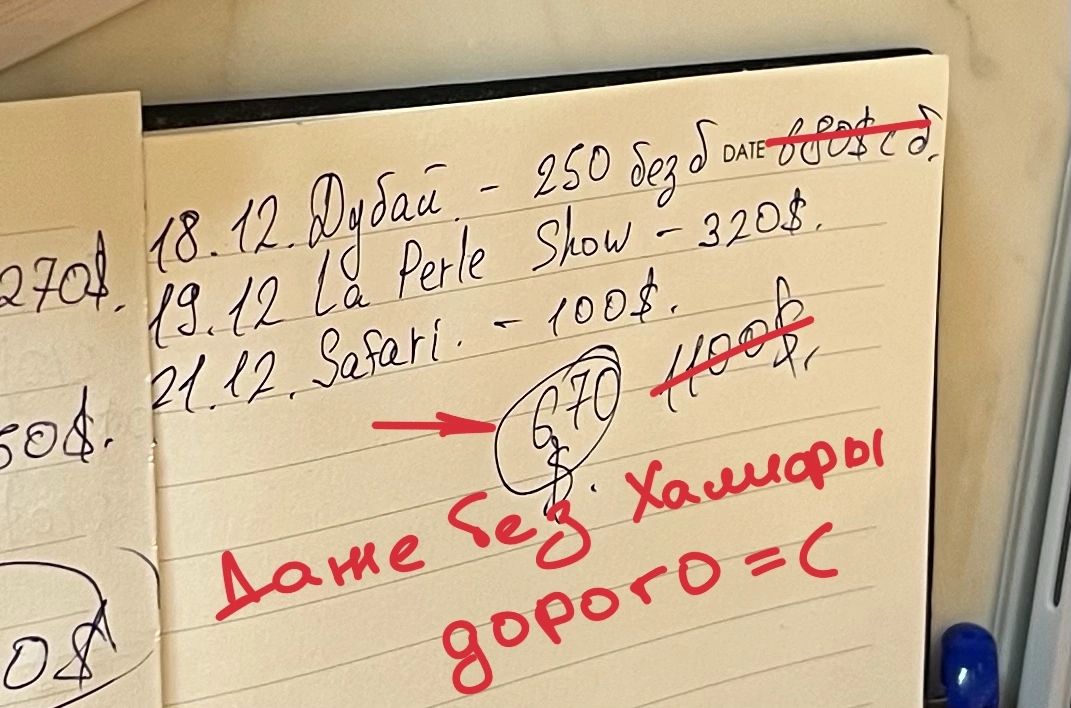 DATE
18.12. Дубай. - 250 без б 680$ с б.
19.12 La Perle Show - 320$.
21.12. Safari. - 100$.
670 $. 1100$.
270$.
50$.
0$
Даже без
дорого =(